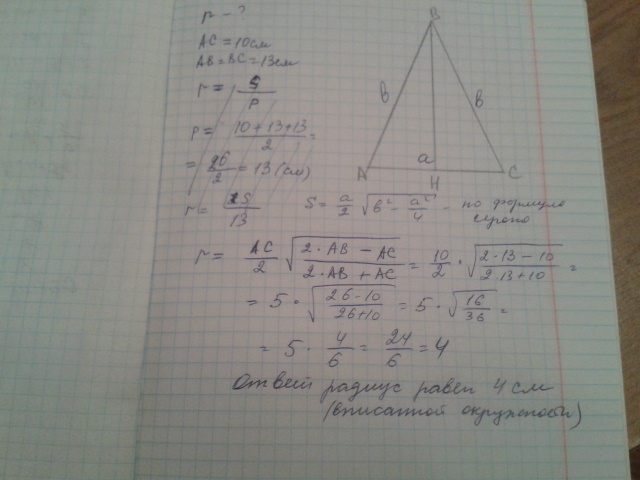 r - ?
AC = 10 см
AB = BC = 13 см
r = S / P
P = 10 + 13 + 13 / 2 =
= 26 / 2 = 13 (см)
r = 2S / 13
S = a/2 √(b² - a²/4) - по формуле
герона
r = AC/2 √(2·AB - AC / 2·AB + AC) = 10/2 · √(2·13 - 10 / 2·13 + 10) =
= 5 · √(26 - 10 / 26 + 10) = 5 · √(16/36) =
= 5 · 4/6 = 24/6 = 4
Ответ радиус равен 4 см
(вписанной окружности)
B
в
в
a
A
H
C